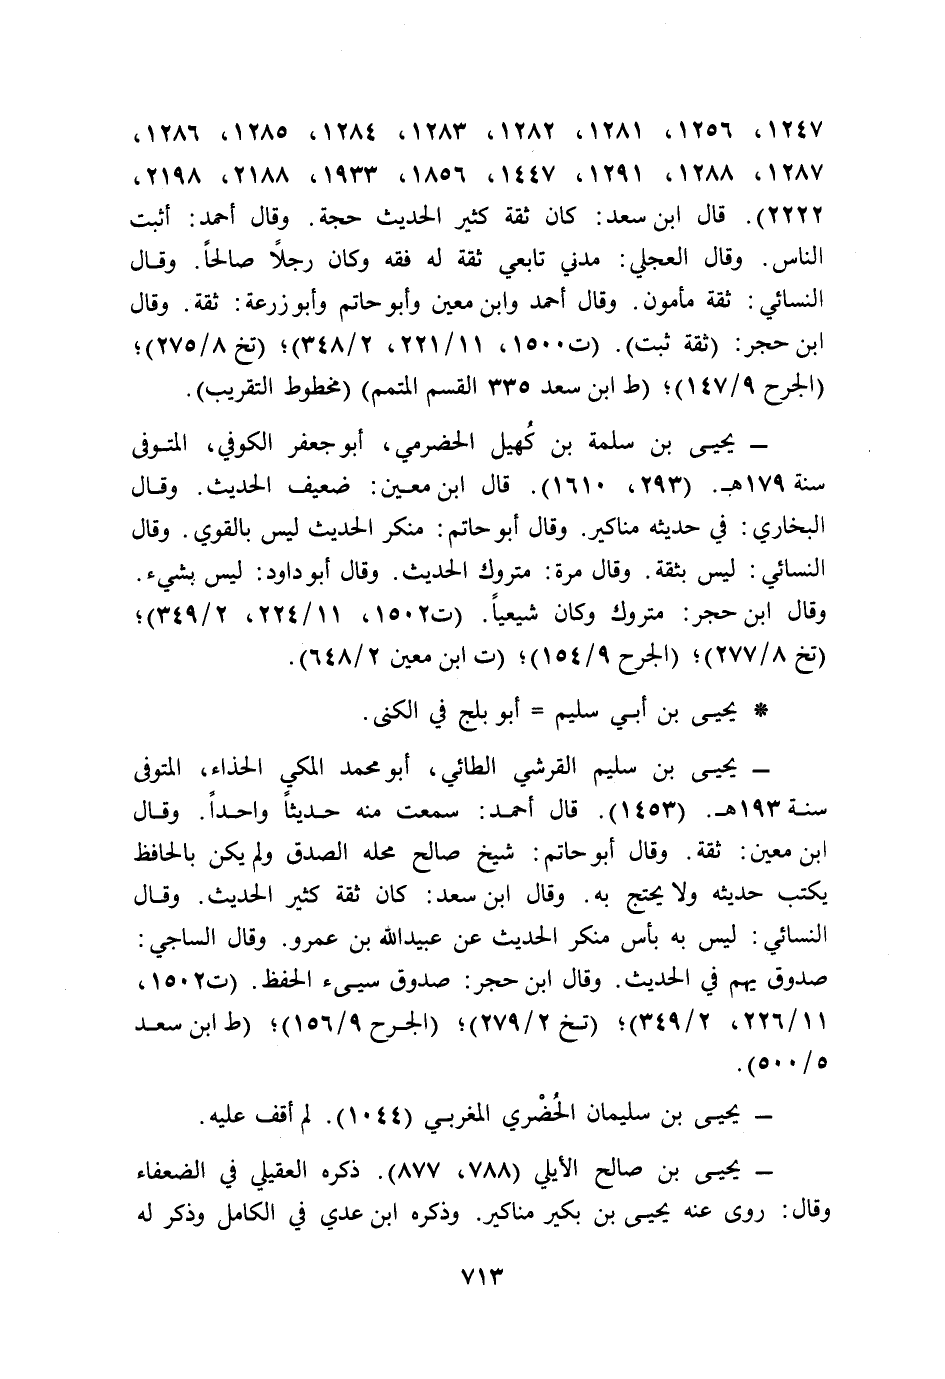 ١٢٤٧، ١٢٥٦، ١٢٨١، ١٢٨٢، ١٢٨٣، ١٢٨٤، ١٢٨٥، ١٢٨٦،
١٢٨٧، ١٢٨٨، ١٢٩١، ١٤٤٧، ١٨٥٦، ١٩٣٣، ٢١٨٨، ٢١٩٨،
٢٢٢٢). قال ابن سعد: كان ثقة كثير الحديث حجة. وقال أحمد: أثبت
الناس. وقال العجلي: مدني تابعي ثقة له فقه وكان رجلاً صالحاً. وقال
النسائي: ثقة مأمون. وقال أحمد وابن معين وأبو حاتم وأبو زرعة: ثقة. وقال
ابن حجر: (ثقة ثبت). (ت١٥٠٠، ٢٢١/١١، ٣٤٨/٢)؛ (تخ ٢٧٥/٨)؛
(الجرح ١٤٧/٩)؛ (ط ابن سعد ٣٣٥ القسم المتمم) (مخطوط التقريب).
– يحيى بن سلمة بن كُهيل الحضرمي، أبو جعفر الكوفي، المتوفى
سنة ١٧٩هـ. (٢٩٣، ١٦١٠). قال ابن معين: ضعيف الحديث. وقال
البخاري: في حديثه مناكير. وقال أبو حاتم: منكر الحديث ليس بالقوي. وقال
النسائي: ليس بثقة. وقال مرة: متروك الحديث. وقال أبو داود: ليس بشيء.
وقال ابن حجر: متروك وكان شيعياً. (ت١٥٠٢، ٢٢٤/١١، ٣٤٩/٢)؛
(تخ ٢٧٧/٨)؛ (الجرح ١٥٤/٩)؛ (ت ابن معين ٦٤٨/٢).
* يحيى بن أبي سليم = أبو بلج في الكنى.
– يحيى بن سليم القرشي الطائي، أبو محمد المكي الحذاء، المتوفى
سنة ١٩٣هـ. (١٤٥٣). قال أحمد: سمعت منه حديثاً واحداً. وقال
ابن معين: ثقة. وقال أبو حاتم: شيخ صالح محله الصدق ولم يكن بالحافظ
يكتب حديثه ولا يحتج به. وقال ابن سعد: كان ثقة كثير الحديث. وقال
النسائي: ليس به بأس منكر الحديث عن عبيدالله بن عمرو. وقال الساجي:
صدوق يهم في الحديث. وقال ابن حجر: صدوق سيىء الحفظ. (ت١٥٠٢،
٢٢٦/١١، ٣٤٩/٢)؛ (تخ ٢٧٩/٢)؛ (الجرح ١٥٦/٩)؛ (ط ابن سعد
٥٠٠/٥).
– يحيى بن سليمان الحُضْري المغربي (١٠٤٤). لم أقف عليه.
– يحيى بن صالح الأيلي (٧٨٨، ٨٧٧). ذكره العقيلي في الضعفاء
وقال: روى عنه يحيى بن بكير مناكير. وذكره ابن عدي في الكامل وذكر له
٧١٣